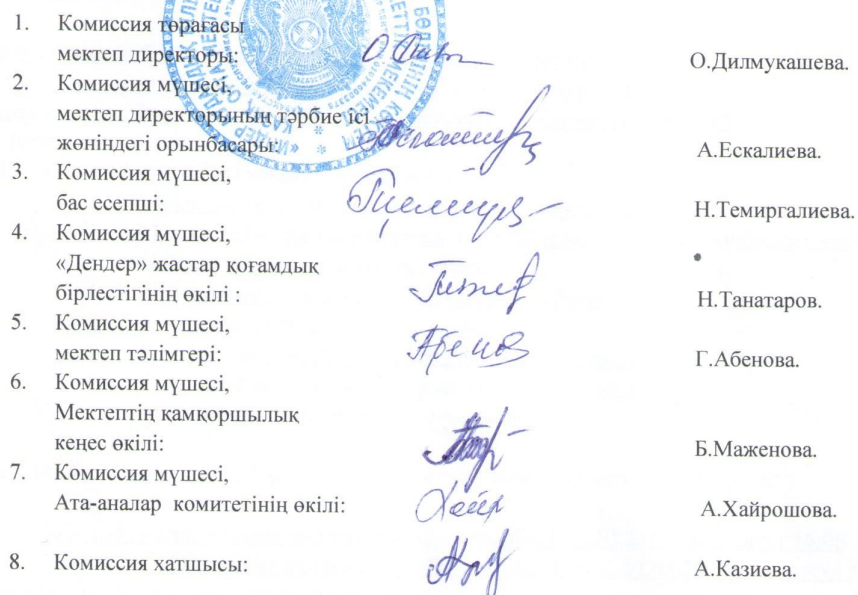 1. Комиссия төрағасы
мектеп директоры: О.Дилмукашева.
2. Комиссия мүшесі,
мектеп директорының тәрбие ісі
жөніндегі орынбасары: А.Ескалиева.
3. Комиссия мүшесі,
бас есепші: Н.Темиргалиева.
4. Комиссия мүшесі,
«Дендер» жастар қоғамдық
бірлестігінің өкілі : Н.Танатаров.
5. Комиссия мүшесі,
мектеп тәлімгері: Абенов Г.Абенова.
6. Комиссия мүшесі,
Мектептің қамқоршылық
кеңес өкілі: Б.Маженова.
7. Комиссия мүшесі,
Ата-аналар комитетінің өкілі: Хайр А.Хайрошова.
8. Комиссия хатшысы: А.Казиева.